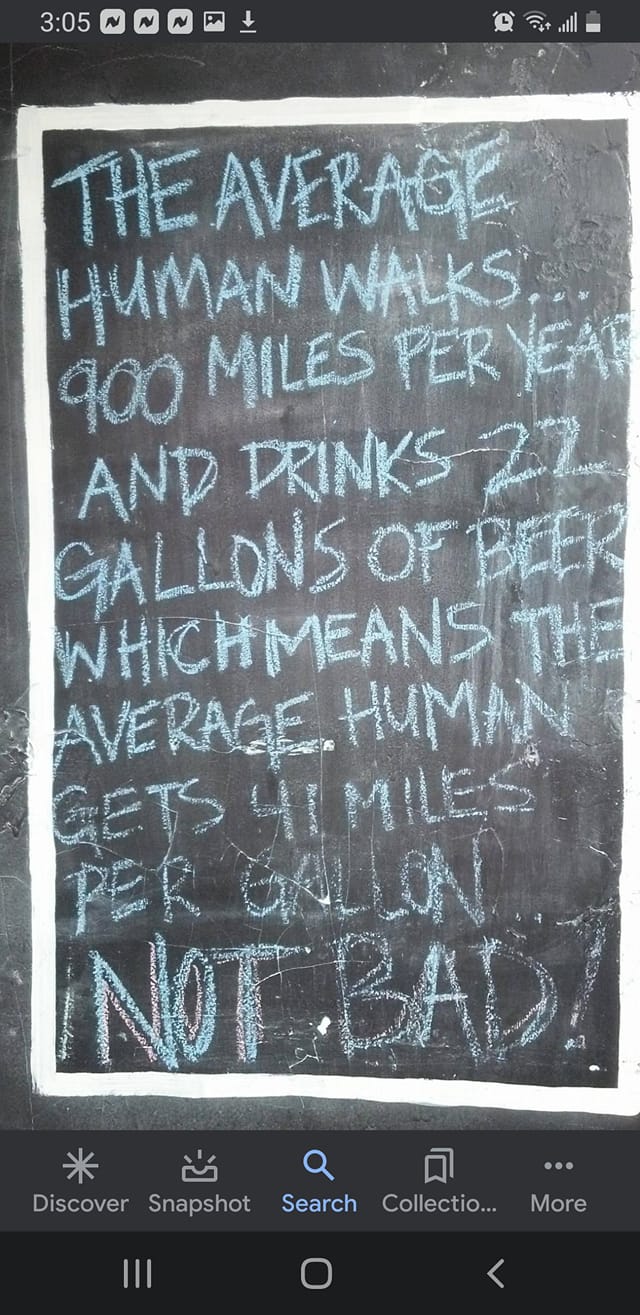 3:05
THE AVERAGE
HUMAN WALKS...
900 MILES PER YEAR
AND DRINKS 22
GALLONS OF BEER
WHICH MEANS THE
AVERAGE HUMAN
GETS 41 MILES
PER GALLON...
NOT BAD!
Discover Snapshot Search Collectio... More